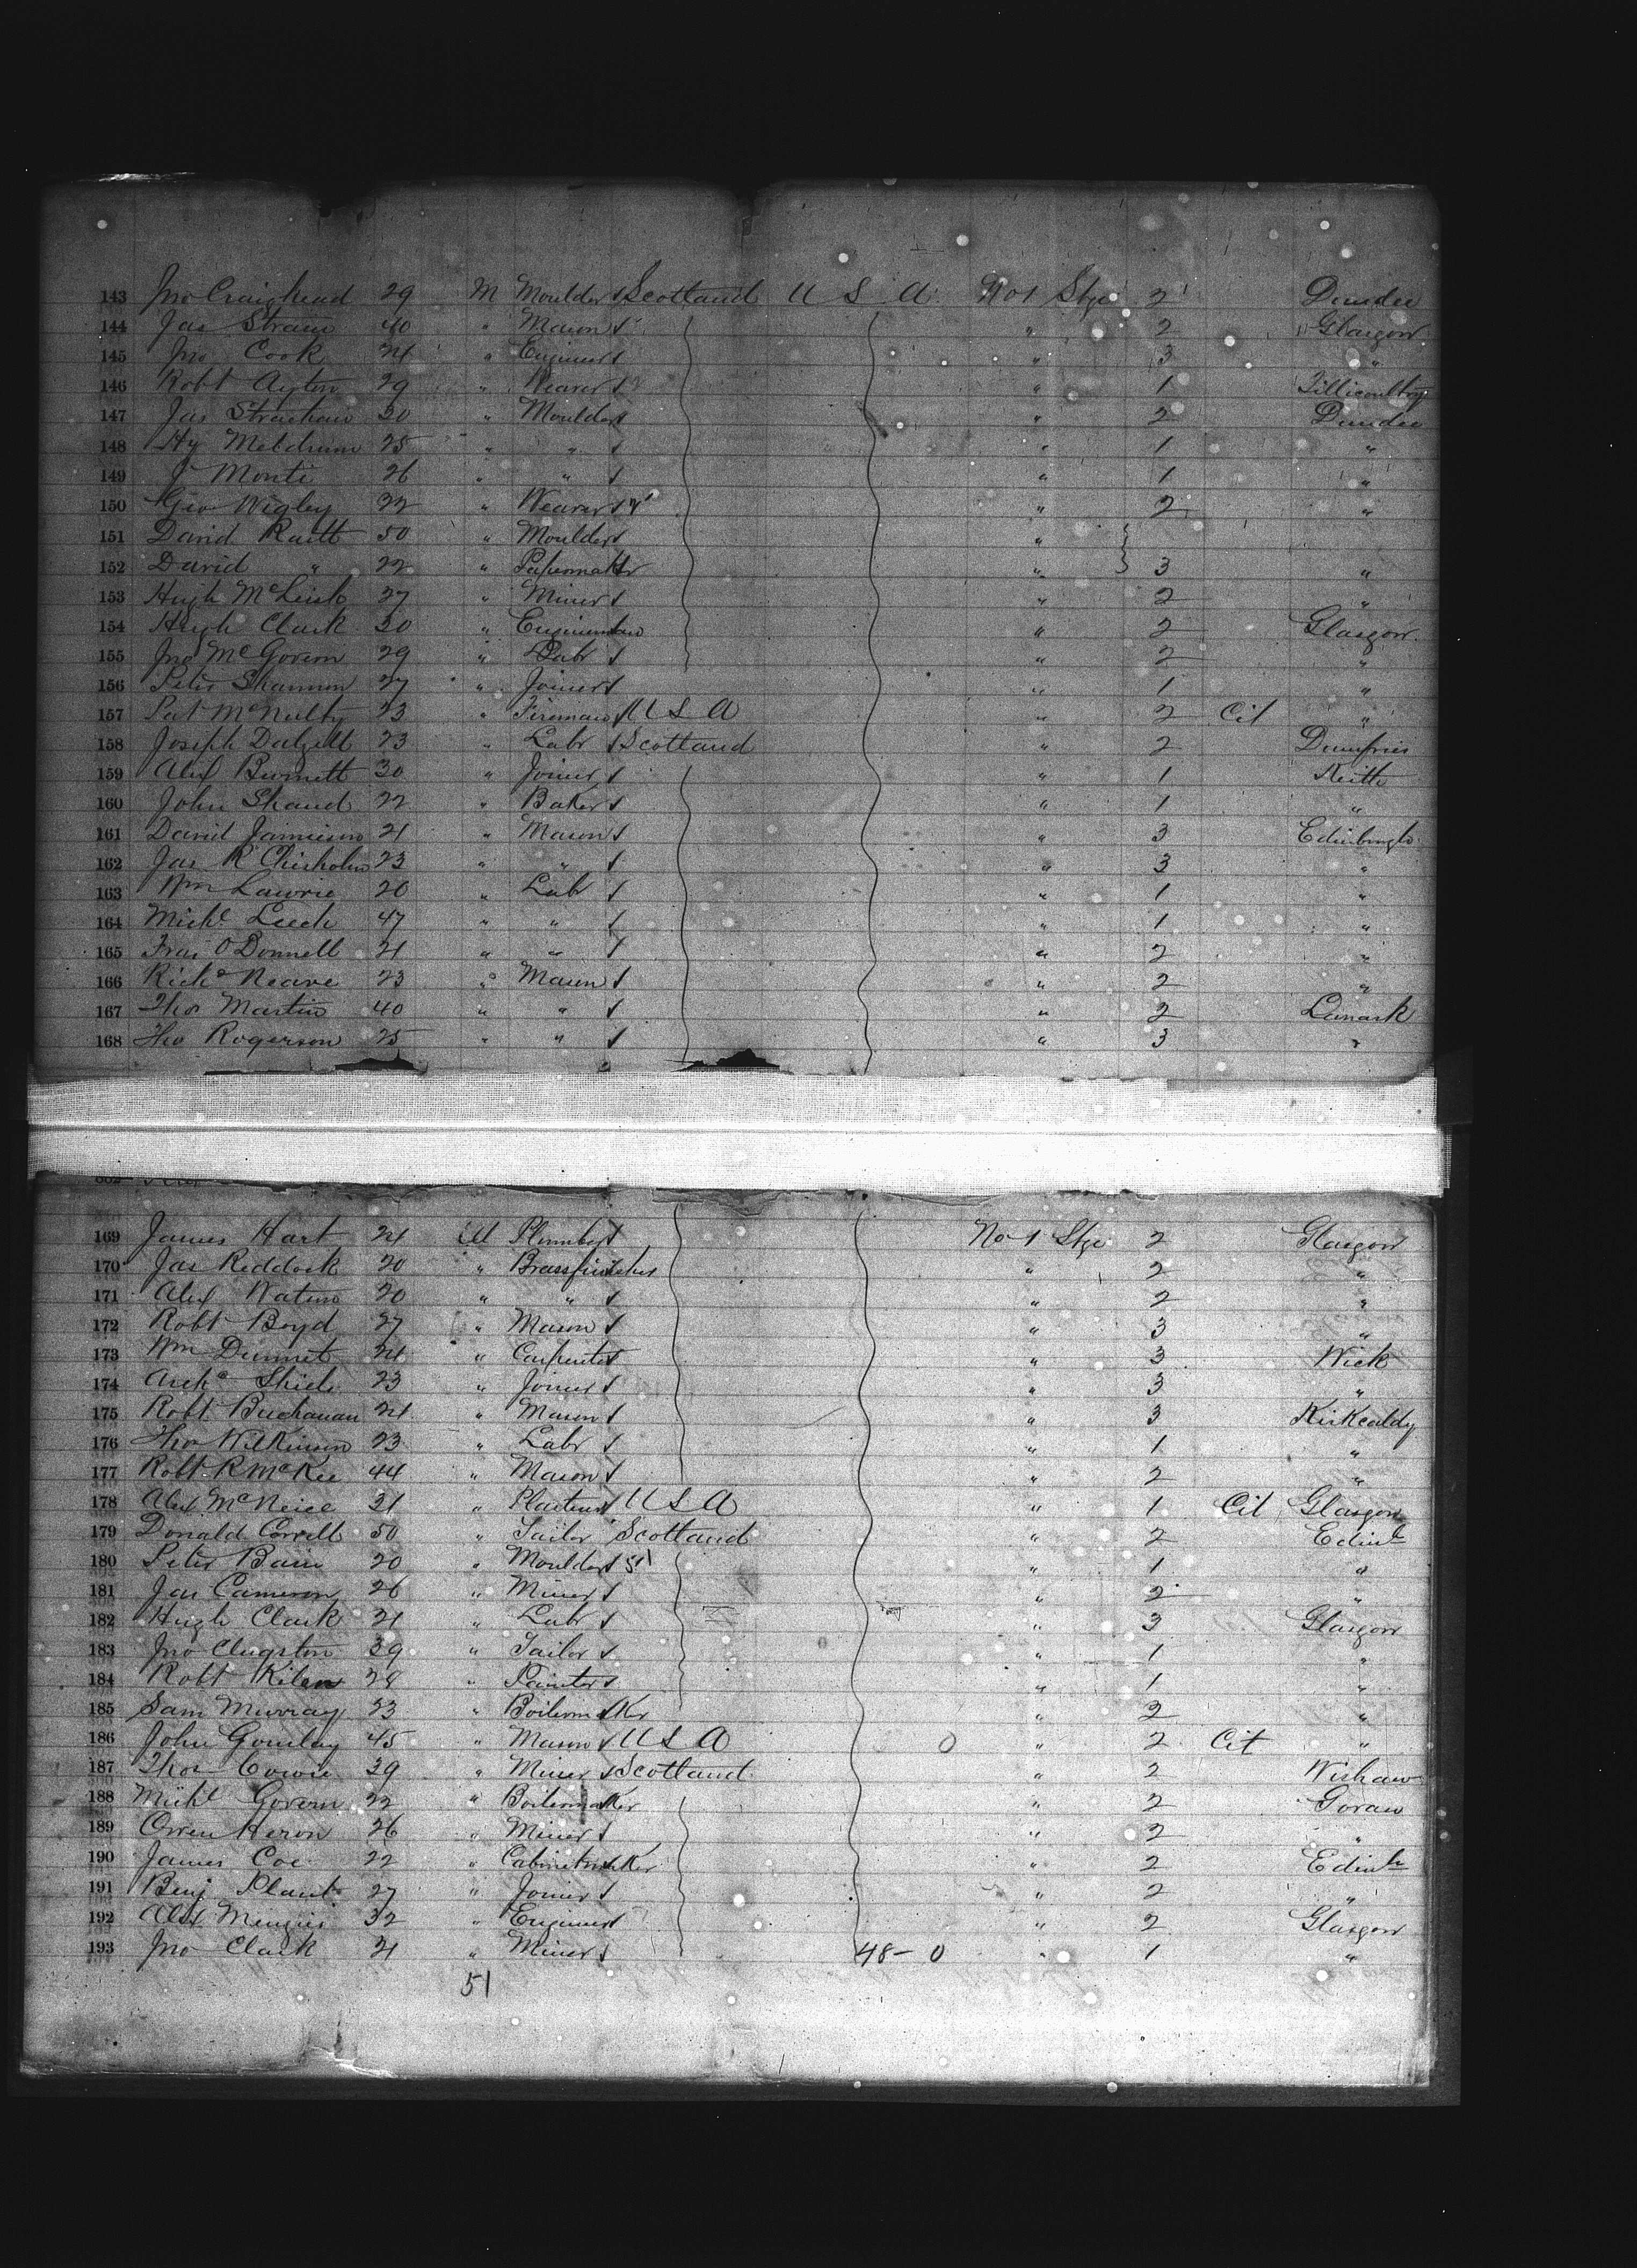 143 Jno Craighead 29 M Moulder Scotland U S A No 1 Stge 2 Dundee
144 Jas Strain 40 " Mason " 2 Glasgow
145 Jno Cook 24 " Engineer " 3 "
146 Robt Ayton 29 " Weaver " 1 Tillicoultry
147 Jas Strachan 30 " Moulder " 2 Dundee
148 Hy Meldrum 25 " " " 1 "
149 J Monti 26 " " " 1 "
150 Geo Wigley 32 " Weaver " 2 "
151 David Raitt 50 " Moulder "
152 David " 22 " Papermaker " 3 "
153 Hugh McLeish 27 " Miner " 2 "
154 Hugh Clark 30 " " 2 Glasgow
155 Jno McGovern 29 " Labr " 2 "
156 Peter Shannon 27 " Joiner " 1 "
157 Pat McNulty 23 " Fireman U S A " 2 Cit "
158 Joseph Dalzell 23 " Labr Scotland " 2 Dumfries
159 Alex Burnett 30 " Joiner " 1 Keith
160 John Shand 22 " Baker " 1 "
161 David Jamieson 21 " Mason " 3 Edinburgh
162 Jas R Chisholm 23 " " " 3 "
163 Wm Lawrie 20 " Labr " 1 "
164 Michl Leech 47 " " " 1 "
165 Fras O'Donnell 21 " " " 2 "
166 Richd Neave 23 " Mason " 2 "
167 Thos Martin 40 " " " 2 Lanark
168 Thos Rogerson 25 " " " 3 "
169 James Hart 24 M Plumber No 1 Stge 2 Glasgow
170 Jas Reddock 20 " Brassfinisher " 2 "
171 Alex Watson 20 " " " 2 "
172 Robt Boyd 27 " Mason " 3 "
173 Wm Dunnet 24 " Carpenter " 3 Wick
174 Archd Shiels 23 " Joiner " 3 "
175 Robt Buchanan 24 " Mason " 3 Kirkcaldy
176 Thos Wilkinson 23 " Labr " 1 "
177 Robt R McKee 44 " Mason " 2 "
178 Alex McNeice 31 " Plasterer U S A " 1 Cit Glasgow
179 Donald Correll 50 " Tailor Scotland " 2 Edinh
180 Peter Bain 20 " Moulder " 1 "
181 Jas Cameron 26 " Miner " 2 "
182 Hugh Clark 21 " Labr " 3 Glasgow
183 Jno Clugston 39 " Tailor " 1 "
184 Robt 28 " Painter " 1 "
185 Sam Murray 23 " Boilermaker " 2 "
186 John Gourlay 45 " Mason U S A 0 " 2 Cit "
187 Thos Cowie 39 " Miner Scotland " 2 Wishaw
188 Michl Govern 22 " Boilermaker " 2 Govan
189 Owen Heron 26 " Miner " 2 "
190 James Coe 22 " Cabinetmaker " 2 Edinh
191 Benj Plant 27 " Joiner " 2 "
192 Alex Menzies 32 " Engineer " 2 Glasgow
193 Jno Clark 21 " Miner 48- 0 " 1 "
51